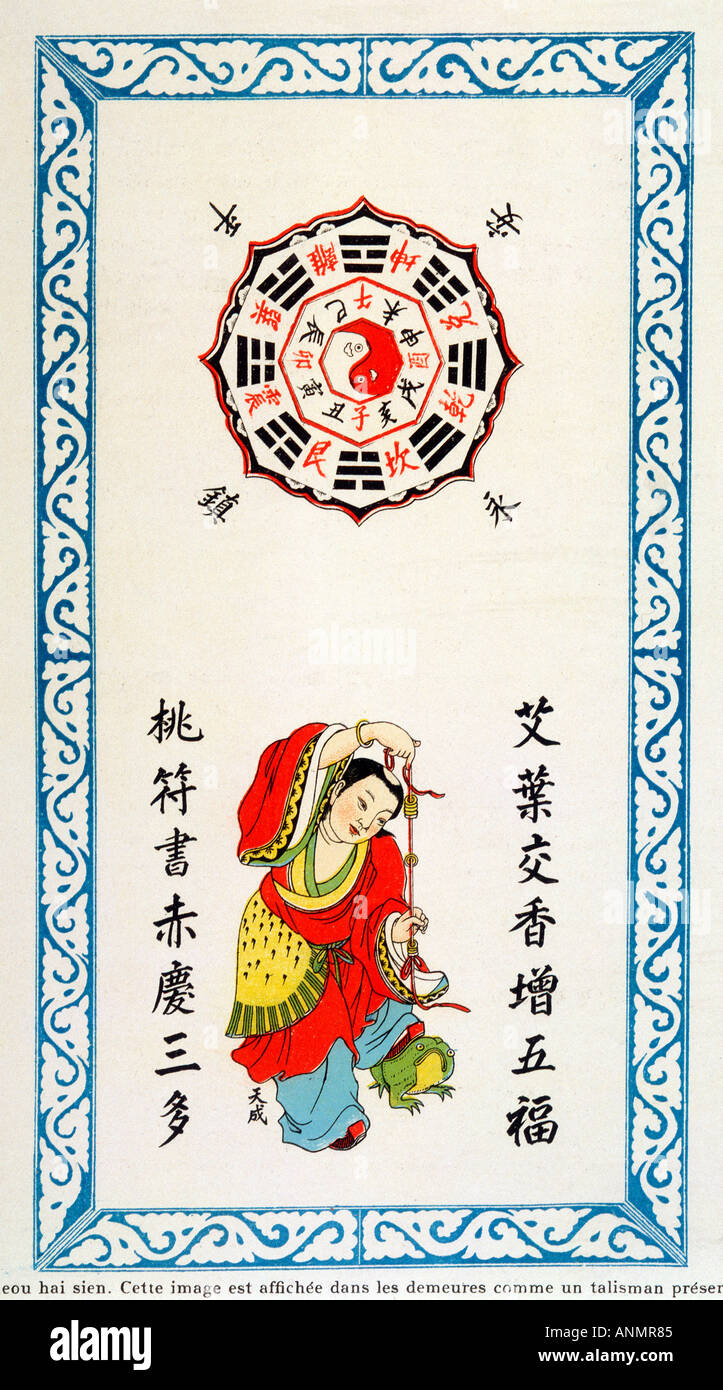 平
安
鎮
永
離 坤 兌 乾 坎 艮 震 巽
午 未 申 酉 戌 亥 子 丑 寅 卯 辰 巳
艾葉交香增五福
桃符書赤慶三多
天成
eou hai sien. Cette image est affichée dans les demeures comme un talisman préser
alamy
alamy
Image ID: ANMR85
www.alamy.com